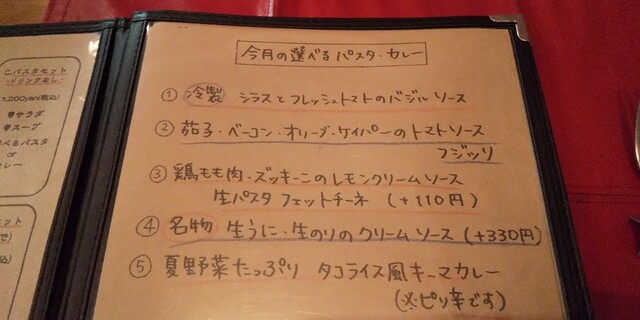 Cパスタセット
-ドリンクなし-
1,200yen(税込)
♥サラダ
♥スープ
べるパスタ
or
レー
今月の選べるパスタ・カレー
① 冷製 シラスとフレッシュトマトのバジルソース
② 茄子・ベーコン・オリーブ・ケイパーのトマトソース
フジッリ
③ 鶏もも肉・ズッキーニのレモンクリームソース
生パスタ フェットチーネ (+110円)
④ 名物 生うに・生のりのクリームソース (+330円)
⑤ 夏野菜たっぷり タコライス風キーマカレー
(※ピリ辛です)